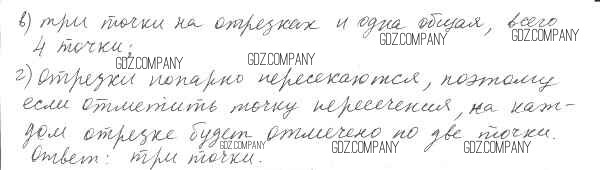 в) три точки на отрезках и одна общая, всего
4 точки;
г) Отрезки попарно пересекаются, поэтому
если отметить точку пересечения, на каж-
дом отрезке будет отмечено по две точки.
Ответ: три точки.
GDZ.COMPANY
GDZ.COMPANY
GDZ.COMPANY
GDZ.COMPANY
GDZ.COMPANY
GDZ.COMPANY
GDZ.COMPANY